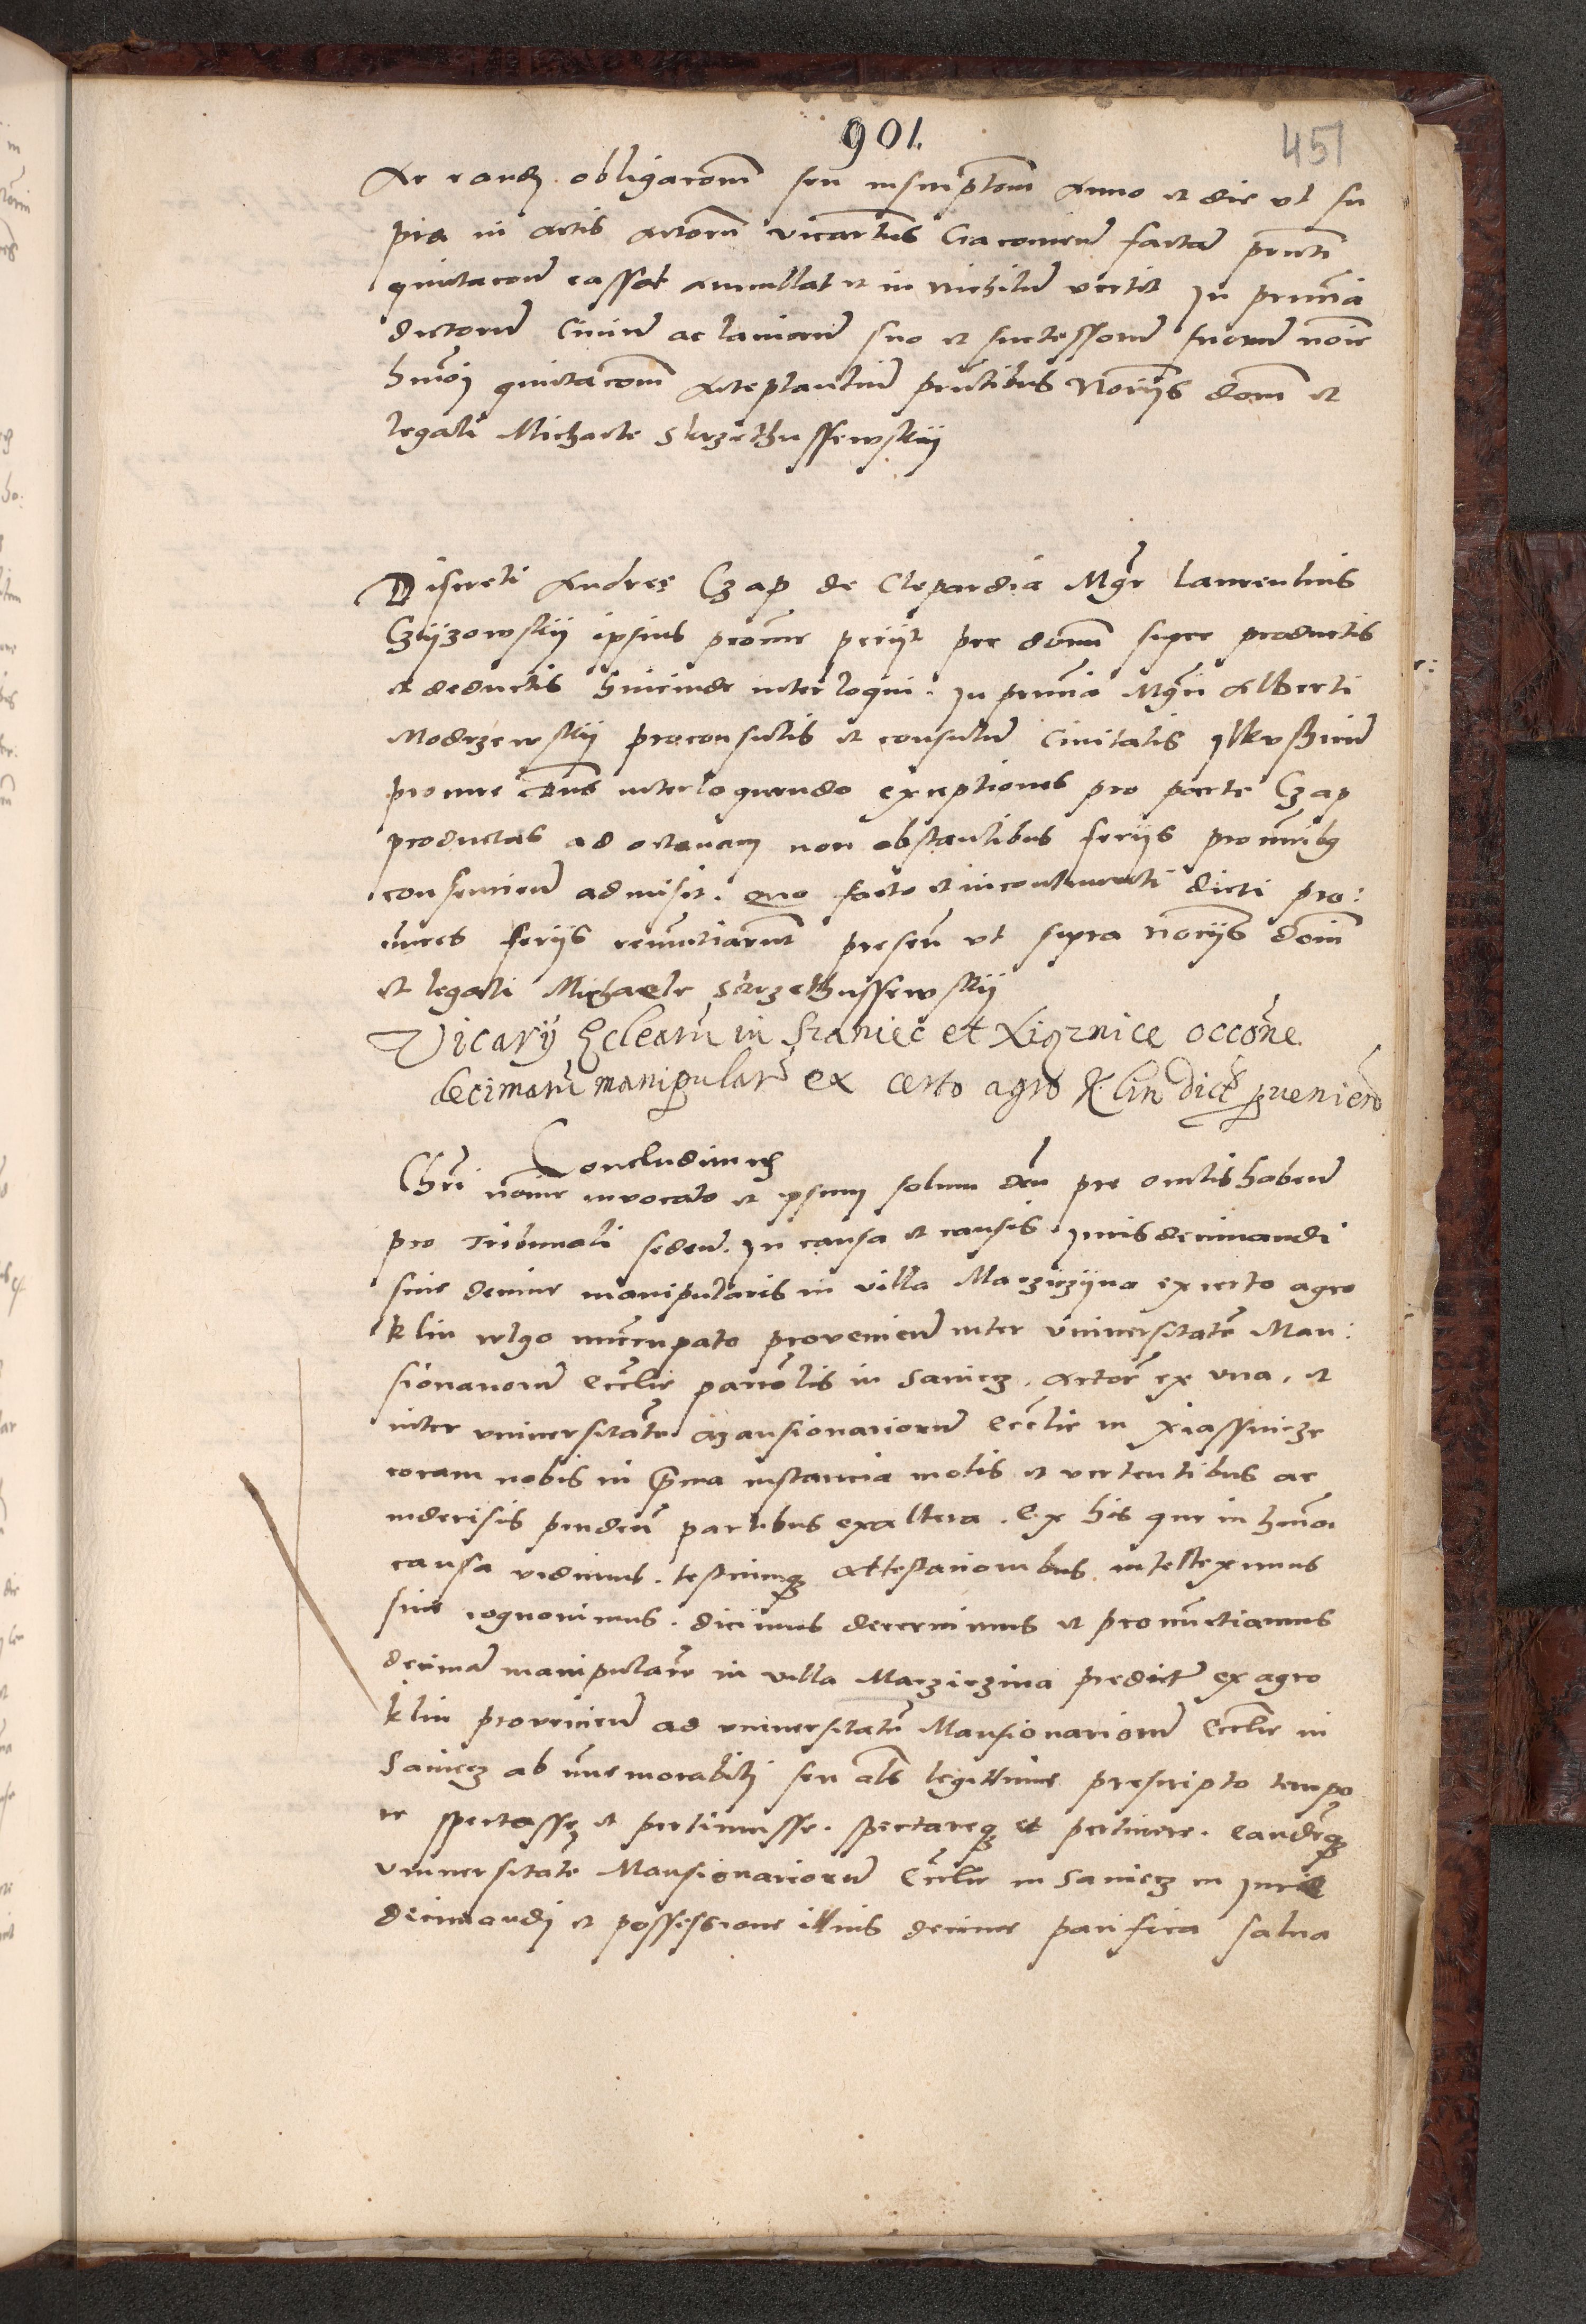 901.
451
Ac eandem obligacōnem seu inscriptōem Anno et die ut su
pra in actis Actorum vicariatus Cracovien̄ factam pn̄ti
quietacōne cassat annullat et in nichilum vertit In pn̄tia
dictorum Civium ac laniorum suo et successorum suorum noīe
hmōi quietacōnem Acceptantium pn̄tibus Notīis dom̄ et
legali Michaele Skrzethussewskij
Discreti Andree Czap de Clepardia Mgr̄ Laurentius
Czyzowskij ipsius procur̄ petiit per dom̄ super productis
et deductis hincinde interloqui. In pn̄tia Mgr̄i Alberti
Modrzewskij proconsulis et consulum Civitatis Ilkusßien̄
procur̄ dn̄s interloquendo exceptiones pro parte Czap
productas ad octavam non obstantibus feriis procur̄ibus
consencien̄ admisit. Quo facto et incontinenti dicti pro:
cur̄es feriis renunctiarunt presen̄ ut supra Notīis dom̄
et legali Michaele Skrzethussewskij
Vicarij Ecclearum in Szaniec et Xigznice occōne
decimarum manipularium ex certo agro Klin dict̄ pueniēn
Concludimus
Chrī nomine invocato et ipsum solum deum pre oculis haben̄
pro Tribunali seden̄. In causa et causis Iuris decimandi
sive decime manipularis in villa Marzięzijna ex certo agro
klin vulgo nuncupato provenien̄ inter Universitatem Man:
sionariorum Ecclīe parrolis in Saniecz. Actorem ex una, et
inter universitatem Mansionariorum Ecclīe in Xiassnicze
coram nobis in prima instancia motis et vertentibus ac
indecisis penden̄ partibus ex altera. Ex his que in hmōi
causa vidimus. testiumque attestationibus intelleximus
sive cognovimus. dicimus decernimus et pronunctiamus
decimam manipularem in villa Marzięzina predict̄ ex agro
klin provenien̄ ad universitatem Mansionariorum Ecclīe in
Saniecz ab immemorabili seu als legittime prescripto tempo
re spectasse et pertinuisse. spectareque et pertinere. eandemque
universitatem Mansionariorum Ecclīe in Saniecz in Iure
decimandi et possessione illius decime pacifica salva